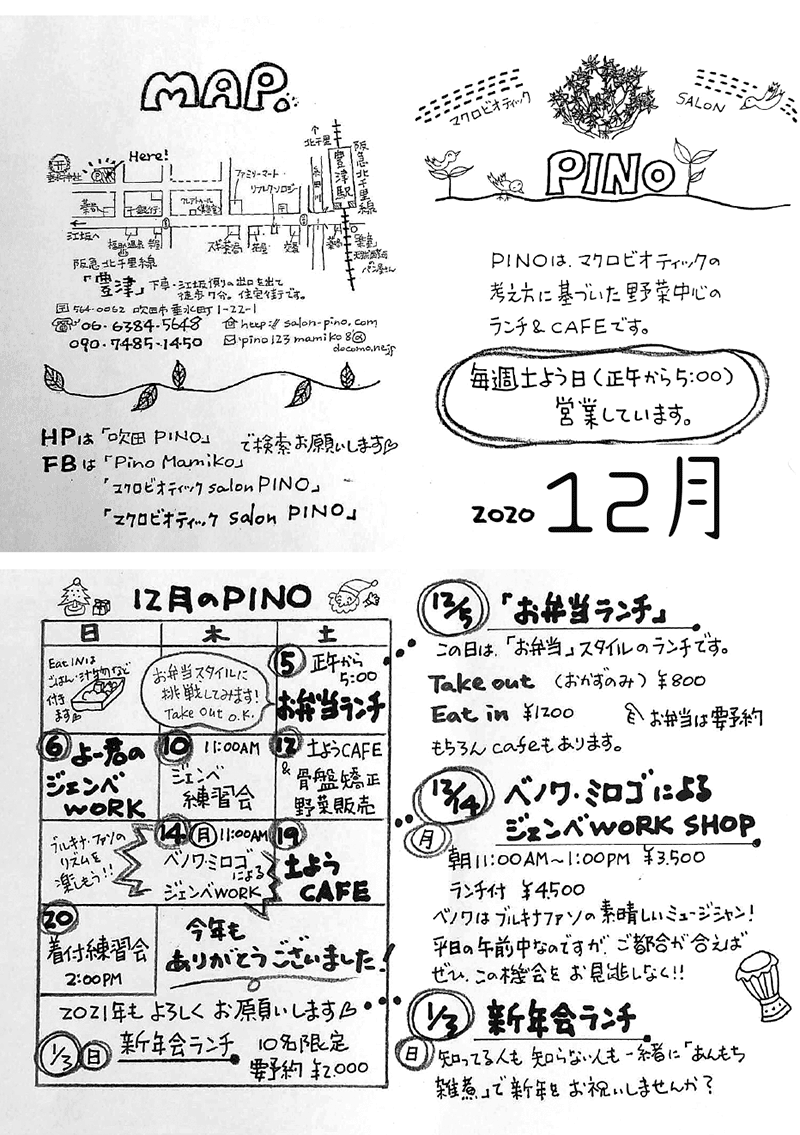 MAP.
Here!
ファミリーマート
リフレクソロジー
北千里
豊津駅
阪急北千里線
江坂へ
阪急北千里線
「豊津」下車・江坂側の出口を出て
徒歩7分。住宅街です。
564-0062 吹田市垂水町1-22-1
06-6384-5648
http://salon-pino.com
090-7485-1450
pino123mamiko8@
docomo.ne.jp
HPは「吹田PINO」で検索お願いします
FBは「Pino Mamiko」
「マクロビオティックsalon PINO」
「マクロビオティック salon PINO」
マクロビオティック
SALON
PINO
PINOは、マクロビオティックの
考え方に基づいた野菜中心の
ランチ&CAFEです。
毎週土よう日(正午から5:00)
営業しています。
2020 12月
12月のPINO
日 木 土
Eat INは
ごはん・汁物など
付き
ます
お弁当スタイルに
挑戦してみます!
Take out O.K.
5 正午から
5:00
お弁当ランチ
6 よー君の
ジェンベ
WORK
10 11:00AM
ジェンベ
練習会
12 土ようCAFE
&骨盤矯正
野菜販売
ブルキナ・ファソの
リズムを
楽しもう!!
14 月 11:00AM
ベノワ・ミロゴ
による
ジェンベWORK
19
土よう
CAFE
20
着付練習会
2:00PM
今年も
ありがとうございました!
2021年もよろしくお願いします
1/3 日 新年会ランチ 10名限定
要予約 ¥2000
12/5 「お弁当ランチ」
この日は、「お弁当」スタイルのランチです。
Take out (おかずのみ) ¥800
Eat in ¥1200 お弁当は要予約
もちろんcafeもあります。
12/14 月 ベノワ・ミロゴによる
ジェンベWORK SHOP
朝11:00AM~1:00PM ¥3,500
ランチ付 ¥4,500
ベノワはブルキナファソの素晴しいミュージシャン!
平日の午前中なのですが、ご都合が合えば
ぜひ、この機会をお見逃しなく!!
1/3 日 新年会ランチ
知ってる人も知らない人も一緒に「あんもち
雑煮」で新年をお祝いしませんか?